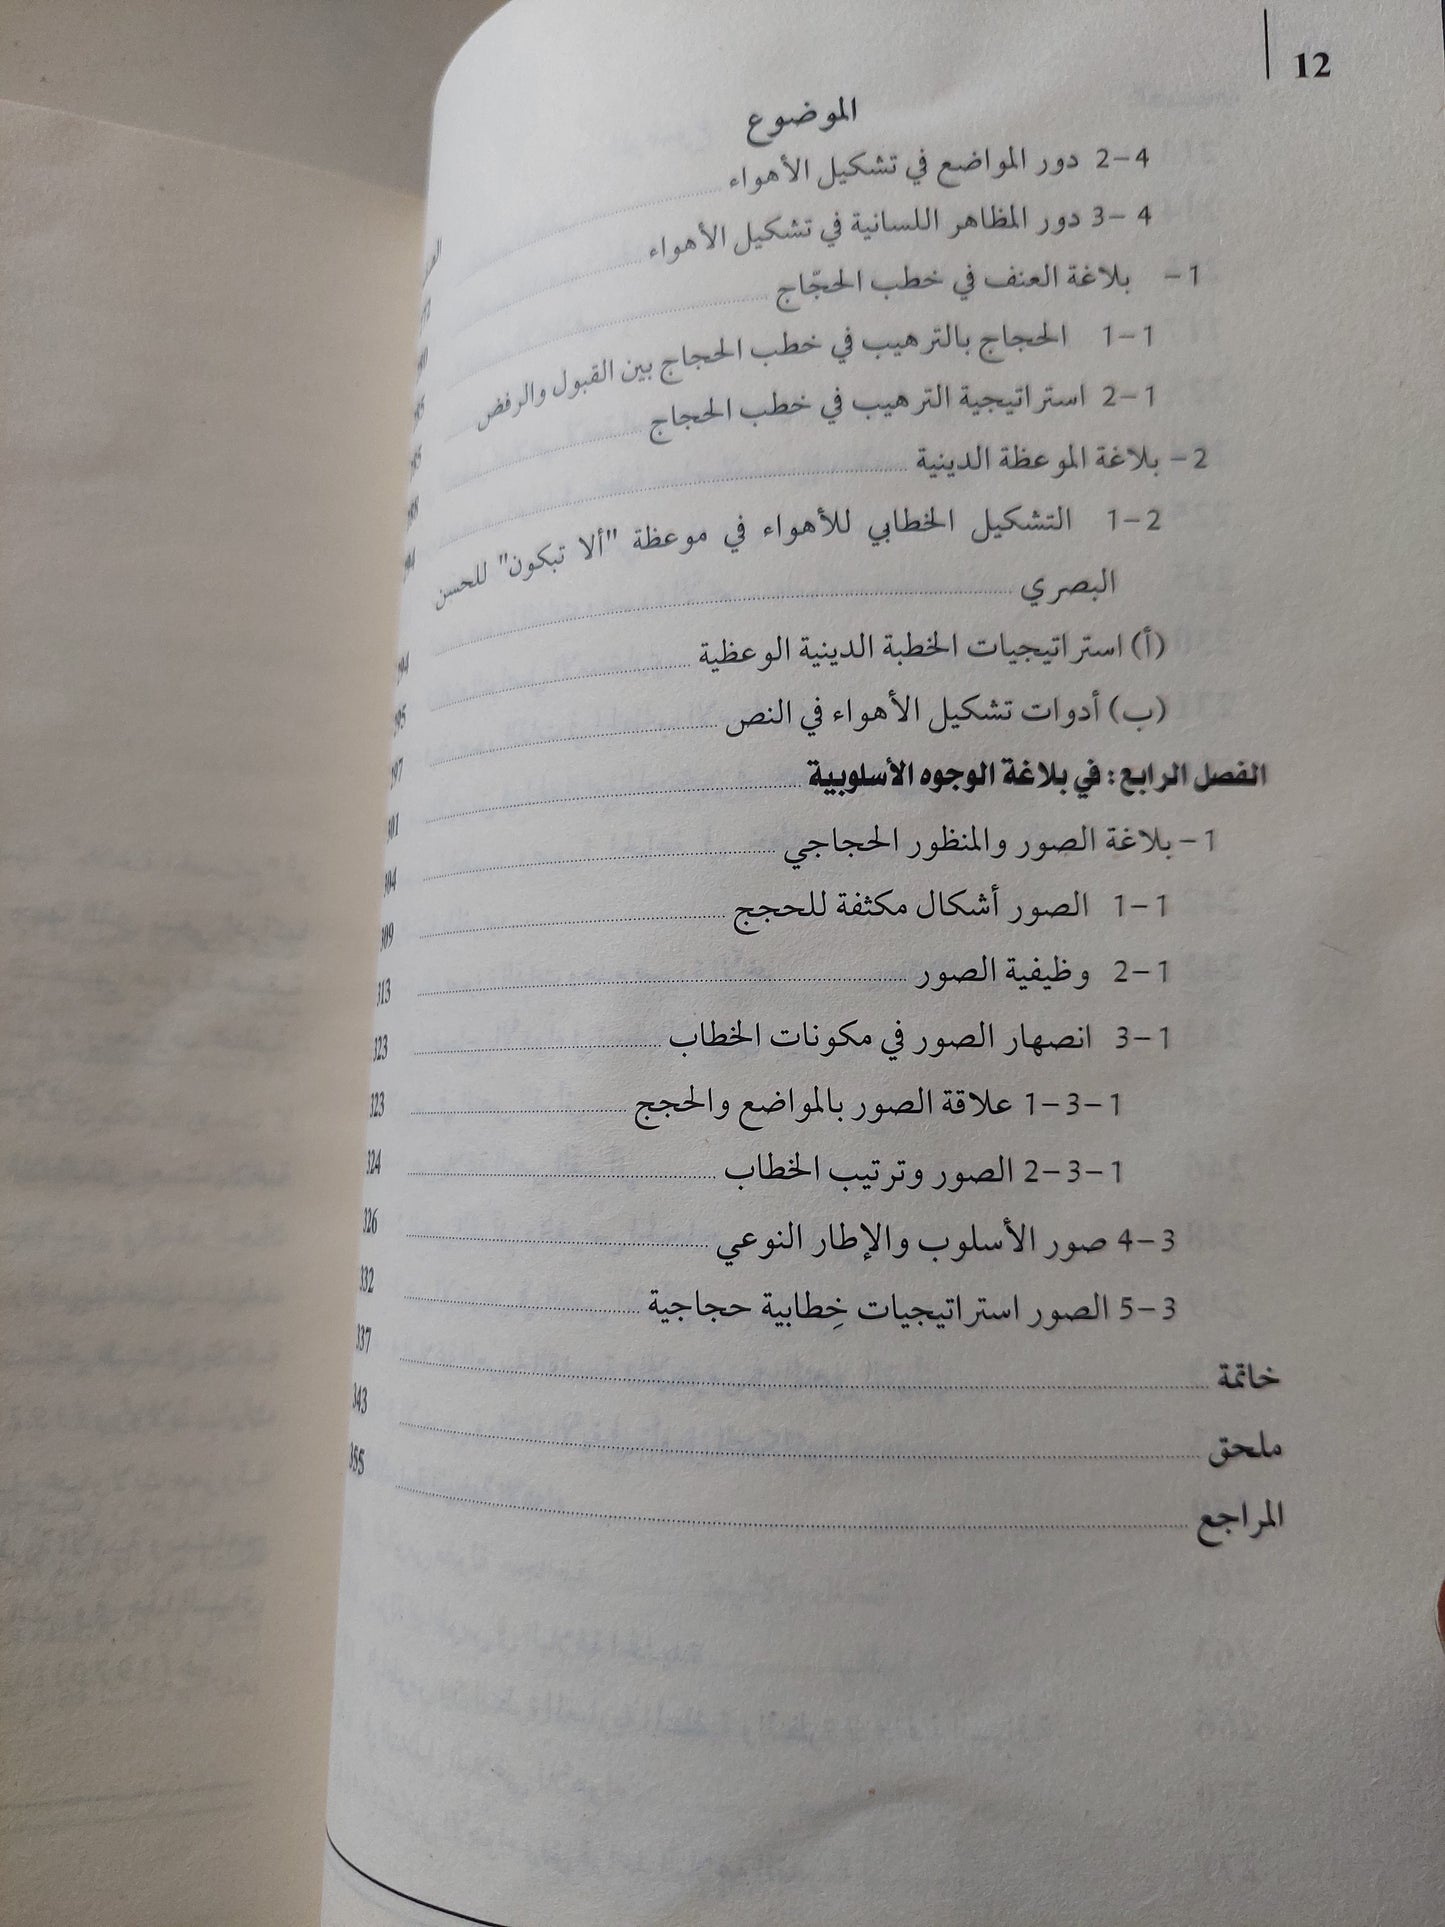 12
الموضوع
4-2 دور المواضع في تشكيل الأهواء
4-3 دور المظاهر اللسانية في تشكيل الأهواء
1- بلاغة العنف في خطب الحجّاج
1-1 الحجاج بالترهيب في خطب الحجاج بين القبول والرفض
1-2 استراتيجية الترهيب في خطب الحجاج
2- بلاغة الموعظة الدينية
2-1 التشكيل الخطابي للأهواء في موعظة "ألا تبكون" للحسن
البصري
(أ) استراتيجيات الخطبة الدينية الوعظية
(ب) أدوات تشكيل الأهواء في النص
الفصل الرابع: في بلاغة الوجوه الأسلوبية
1- بلاغة الصور والمنظور الحجاجي
1-1 الصور أشكال مكثفة للحجج 309
1-2 وظيفية الصور 313
1-3 انصهار الصور في مكونات الخطاب 323
1-3-1 علاقة الصور بالمواضع والحجج 323
1-3-2 الصور وترتيب الخطاب 324
3-4 صور الأسلوب والإطار النوعي 326
3-5 الصور استراتيجيات خِطابية حجاجية 332
خاتمة 337
ملحق 343
المراجع 355